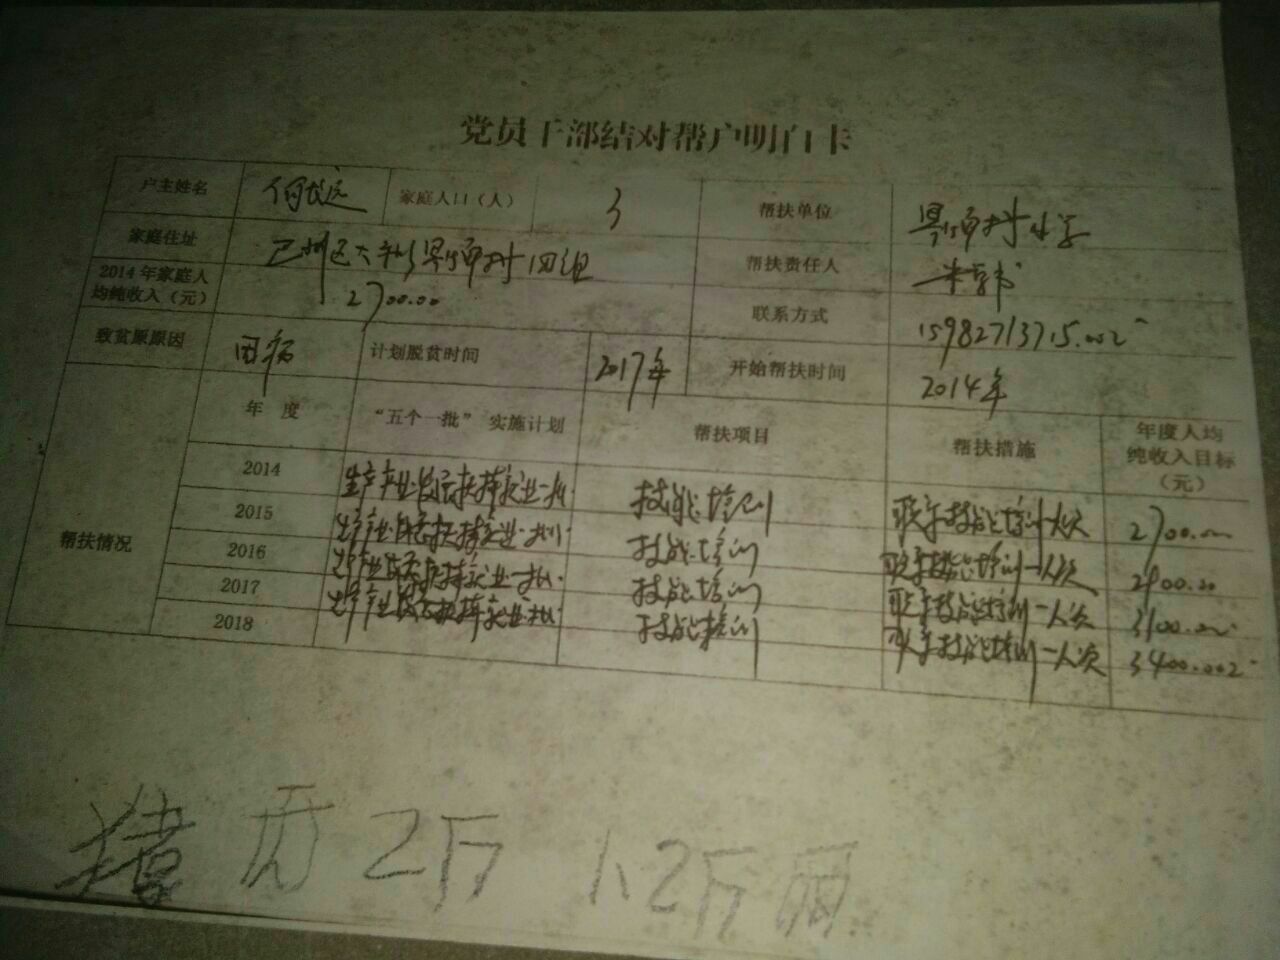 党员干部结对帮户明白卡
户主姓名 何长远 家庭人口（人） 3 帮扶单位
家庭住址 巴州区大和 四组 帮扶责任人
2014年家庭人均纯收入（元） 2700.00 联系方式 15982713715.
致贫原原因 因病 计划脱贫时间 2017年 开始帮扶时间 2014年
帮扶情况 年 度 “五个一批” 实施计划 帮扶项目 帮扶措施 年度人均纯收入目标（元）
2014 生产产业发展扶持就业一批. 技能培训 联系技能培训一人次 2700.00
2015 生产产业发展扶持就业一批. 技能培训 联系技能培训一人次 2900.00
2016 生产产业发展扶持就业一批. 技能培训 联系技能培训一人次 3100.00
2017 生产产业发展扶持就业一批. 技能培训 联系技能培训一人次 3400.00
2018
猪 2斤 1.2斤